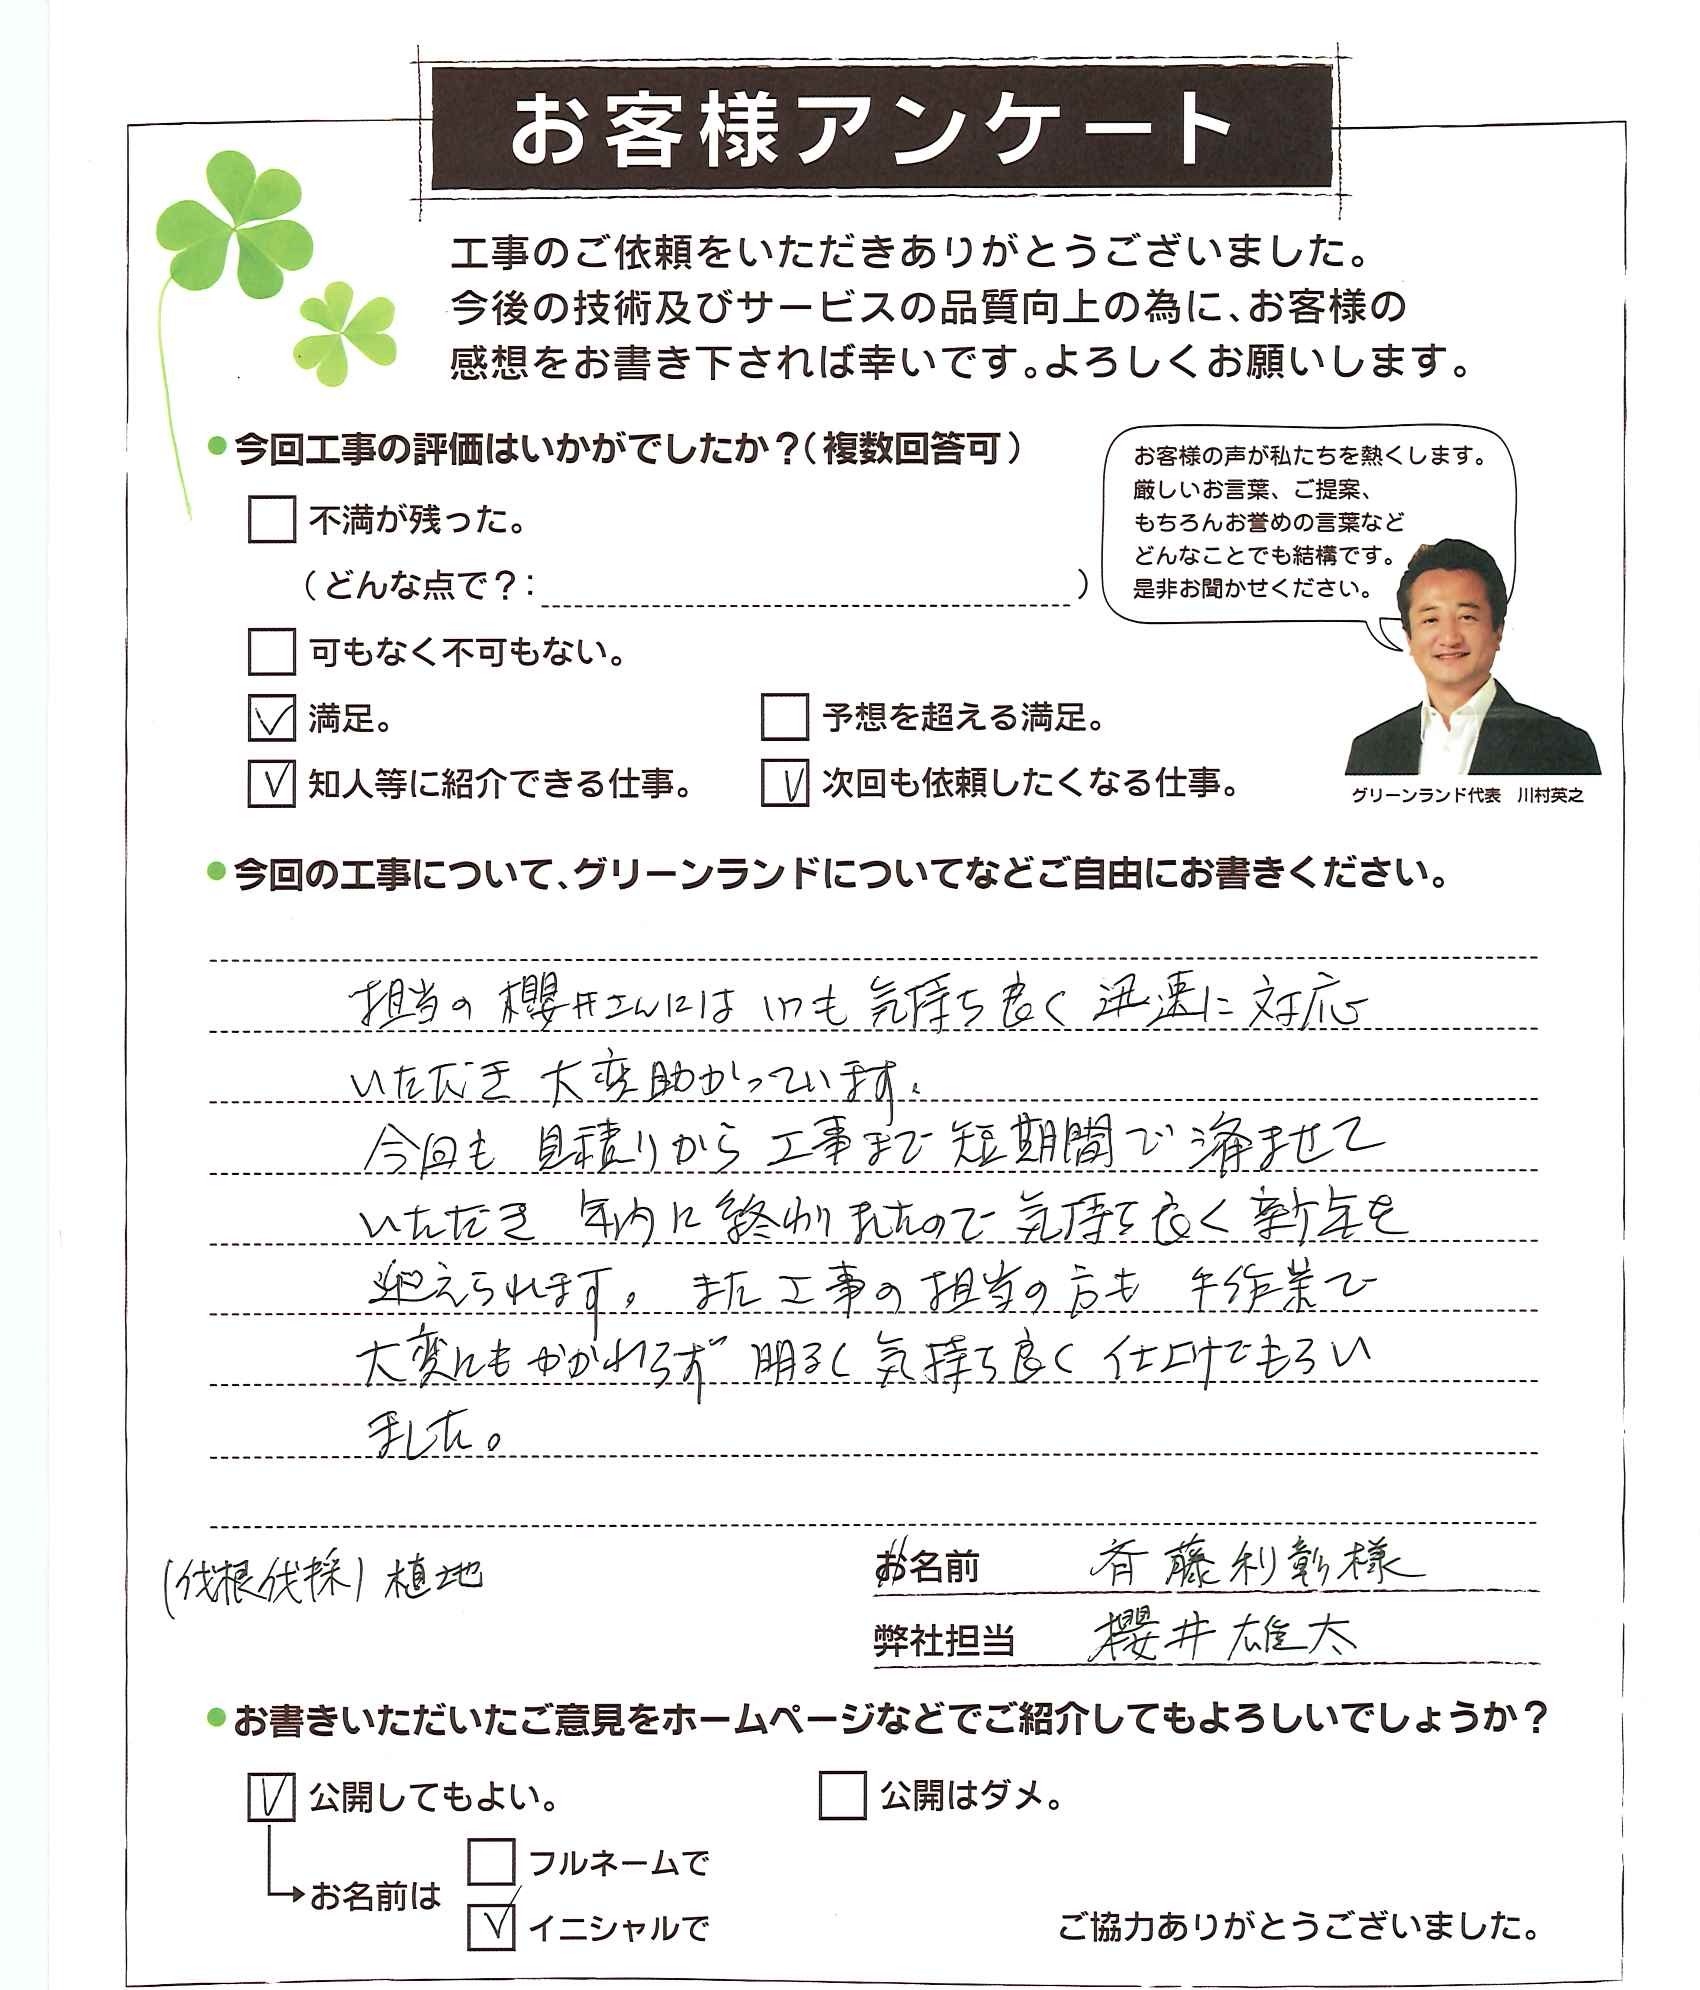 お客様アンケート
工事のご依頼をいただきありがとうございました。
今後の技術及びサービスの品質向上の為に、お客様の
感想をお書き下されば幸いです。よろしくお願いします。
●今回工事の評価はいかがでしたか？（複数回答可）
不満が残った。
（どんな点で？：　　）
可もなく不可もない。
満足。
予想を超える満足。
知人等に紹介できる仕事。
次回も依頼したくなる仕事。
お客様の声が私たちを熱くします。
厳しいお言葉、ご提案、
もちろんお誉めの言葉など
どんなことでも結構です。
是非お聞かせください。
グリーンランド代表　川村英之
●今回の工事について、グリーンランドについてなどご自由にお書きください。
担当の櫻井さんには いつも 気持ち良く 迅速に 対応
いただき 大変助かっています。
今回も 見積りから 工事まで 短期間で 済ませて
いただき 年内に終わりましたので 気持ち良く 新年を
迎えられます。また工事の担当の方も 手作業で
大変にもかかわらず 明るく 気持ち良く 仕上げてもらい
ました。
(伐根伐採) 植地
お名前　斉藤利彰様
弊社担当　櫻井雄太
●お書きいただいたご意見をホームページなどでご紹介してもよろしいでしょうか？
公開してもよい。
公開はダメ。
お名前は
フルネームで
イニシャルで
ご協力ありがとうございました。